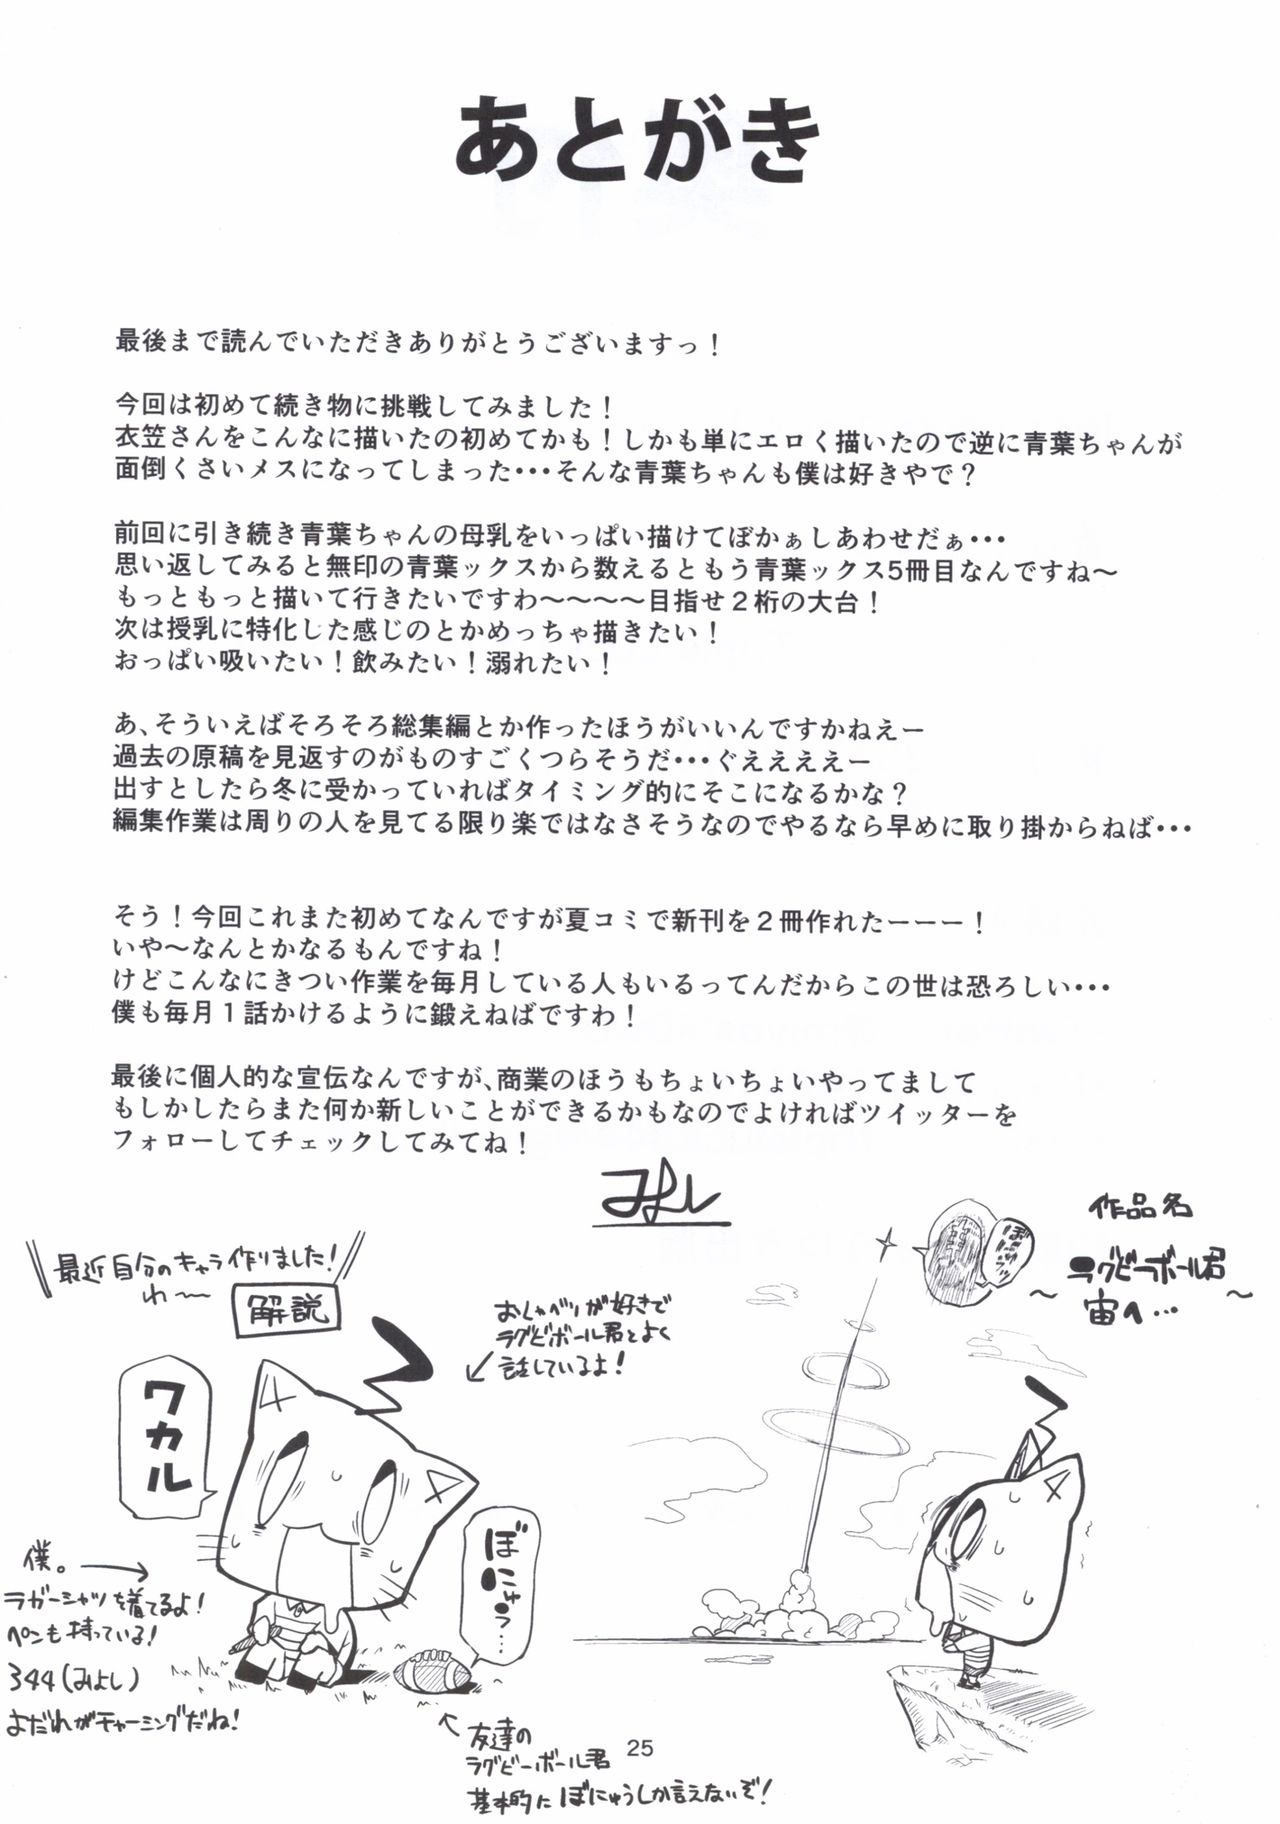 あとがき
最後まで読んでいただきありがとうございますっ！
今回は初めて続き物に挑戦してみました！
衣笠さんをこんなに描いたの初めてかも！しかも単にエロく描いたので逆に青葉ちゃんが
面倒くさいメスになってしまった・・・そんな青葉ちゃんも僕は好きやで？
前回に引き続き青葉ちゃんの母乳をいっぱい描けてぼかぁしあわせだぁ・・・
思い返してみると無印の青葉ックスから数えるともう青葉ックス5冊目なんですね～
もっともっと描いて行きたいですわ～～～～目指せ２桁の大台！
次は授乳に特化した感じのとかめっちゃ描きたい！
おっぱい吸いたい！飲みたい！溺れたい！
あ、そういえばそろそろ総集編とか作ったほうがいいんですかねえー
過去の原稿を見返すのがものすごくつらそうだ・・・ぐええええー
出すとしたら冬に受かっていればタイミング的にそこになるかな？
編集作業は周りの人を見てる限り楽ではなさそうなのでやるなら早めに取り掛からねば・・・
そう！今回これまた初めてなんですが夏コミで新刊を２冊作れたーーー！
いや～なんとかなるもんですね！
けどこんなにきつい作業を毎月している人もいるってんだからこの世は恐ろしい・・・
僕も毎月１話かけるように鍛えねばですわ！
最後に個人的な宣伝なんですが、商業のほうもちょいちょいやってまして
もしかしたらまた何か新しいことができるかもなのでよければツイッターを
フォローしてチェックしてみてね！
みよし
最近自分のキャラ作りました！
わ～
解説
おしゃべりが好きで
ラグビボール君とよく
話しているよ！
ワカル
ぼにゅう…
僕。
ラガーシャツを着てるよ！
ペンも持っている！
344(みよし)
よだれがチャーミングだね！
友達の
ラグビーボール君
基本的にぼにゅうしか言えないぞ！
作品名
ラグビーボール君
～宙へ…～
25